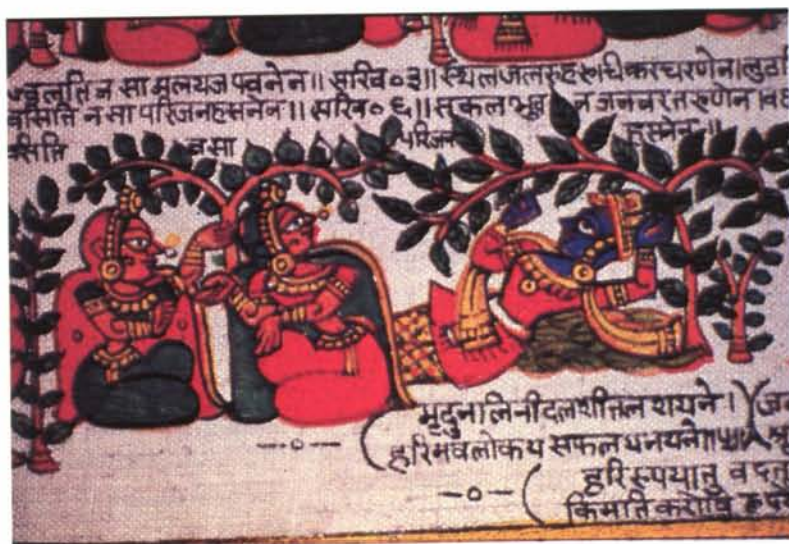 ज्वलति न सा मलयज पवनेन॥ सखि०३॥ स्थलजलरुहरुचिकरचरणेन।लुठ
वसिति न सा परिजनहसनेन॥ सखि०६॥ सकलभुव न जनवरतरुणेन।वह
सिति न सा परिजन हसनेन॥
मृदुनलिनीदलशीतल शयने।
—०— हरिमवलोकय सफलय नयने॥५॥
हरिरुपयातु वदतु
—०— किमति करोषि हृद